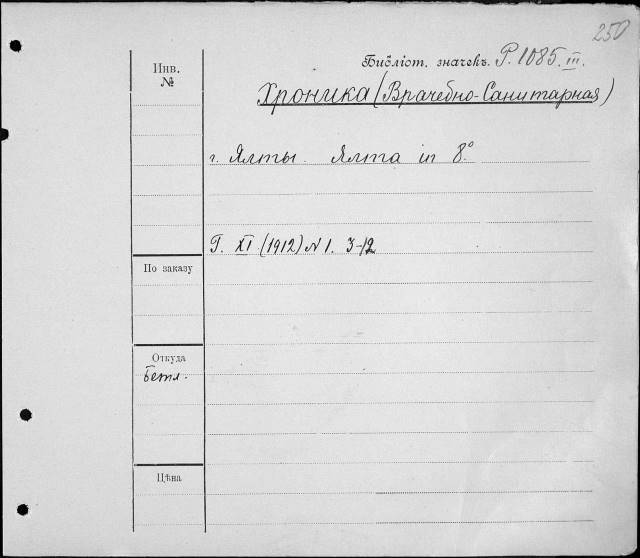 250
Инв.
№
Библіот. значекъ. P. 1085. III.
Хроника (Врачебно-Санитарная)
г. Ялты. Ялта in 8.º
Г. XI (1912) N 1. 3-12
По заказу
Откуда
Цѣна